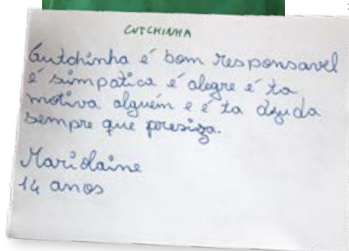 CUTCHINHA
Cutchinha é bom responsavel
é simpatica é alegre é ta
motiva alguém e é ta djuda
sempre que presiza.
Maridaine
14 anos